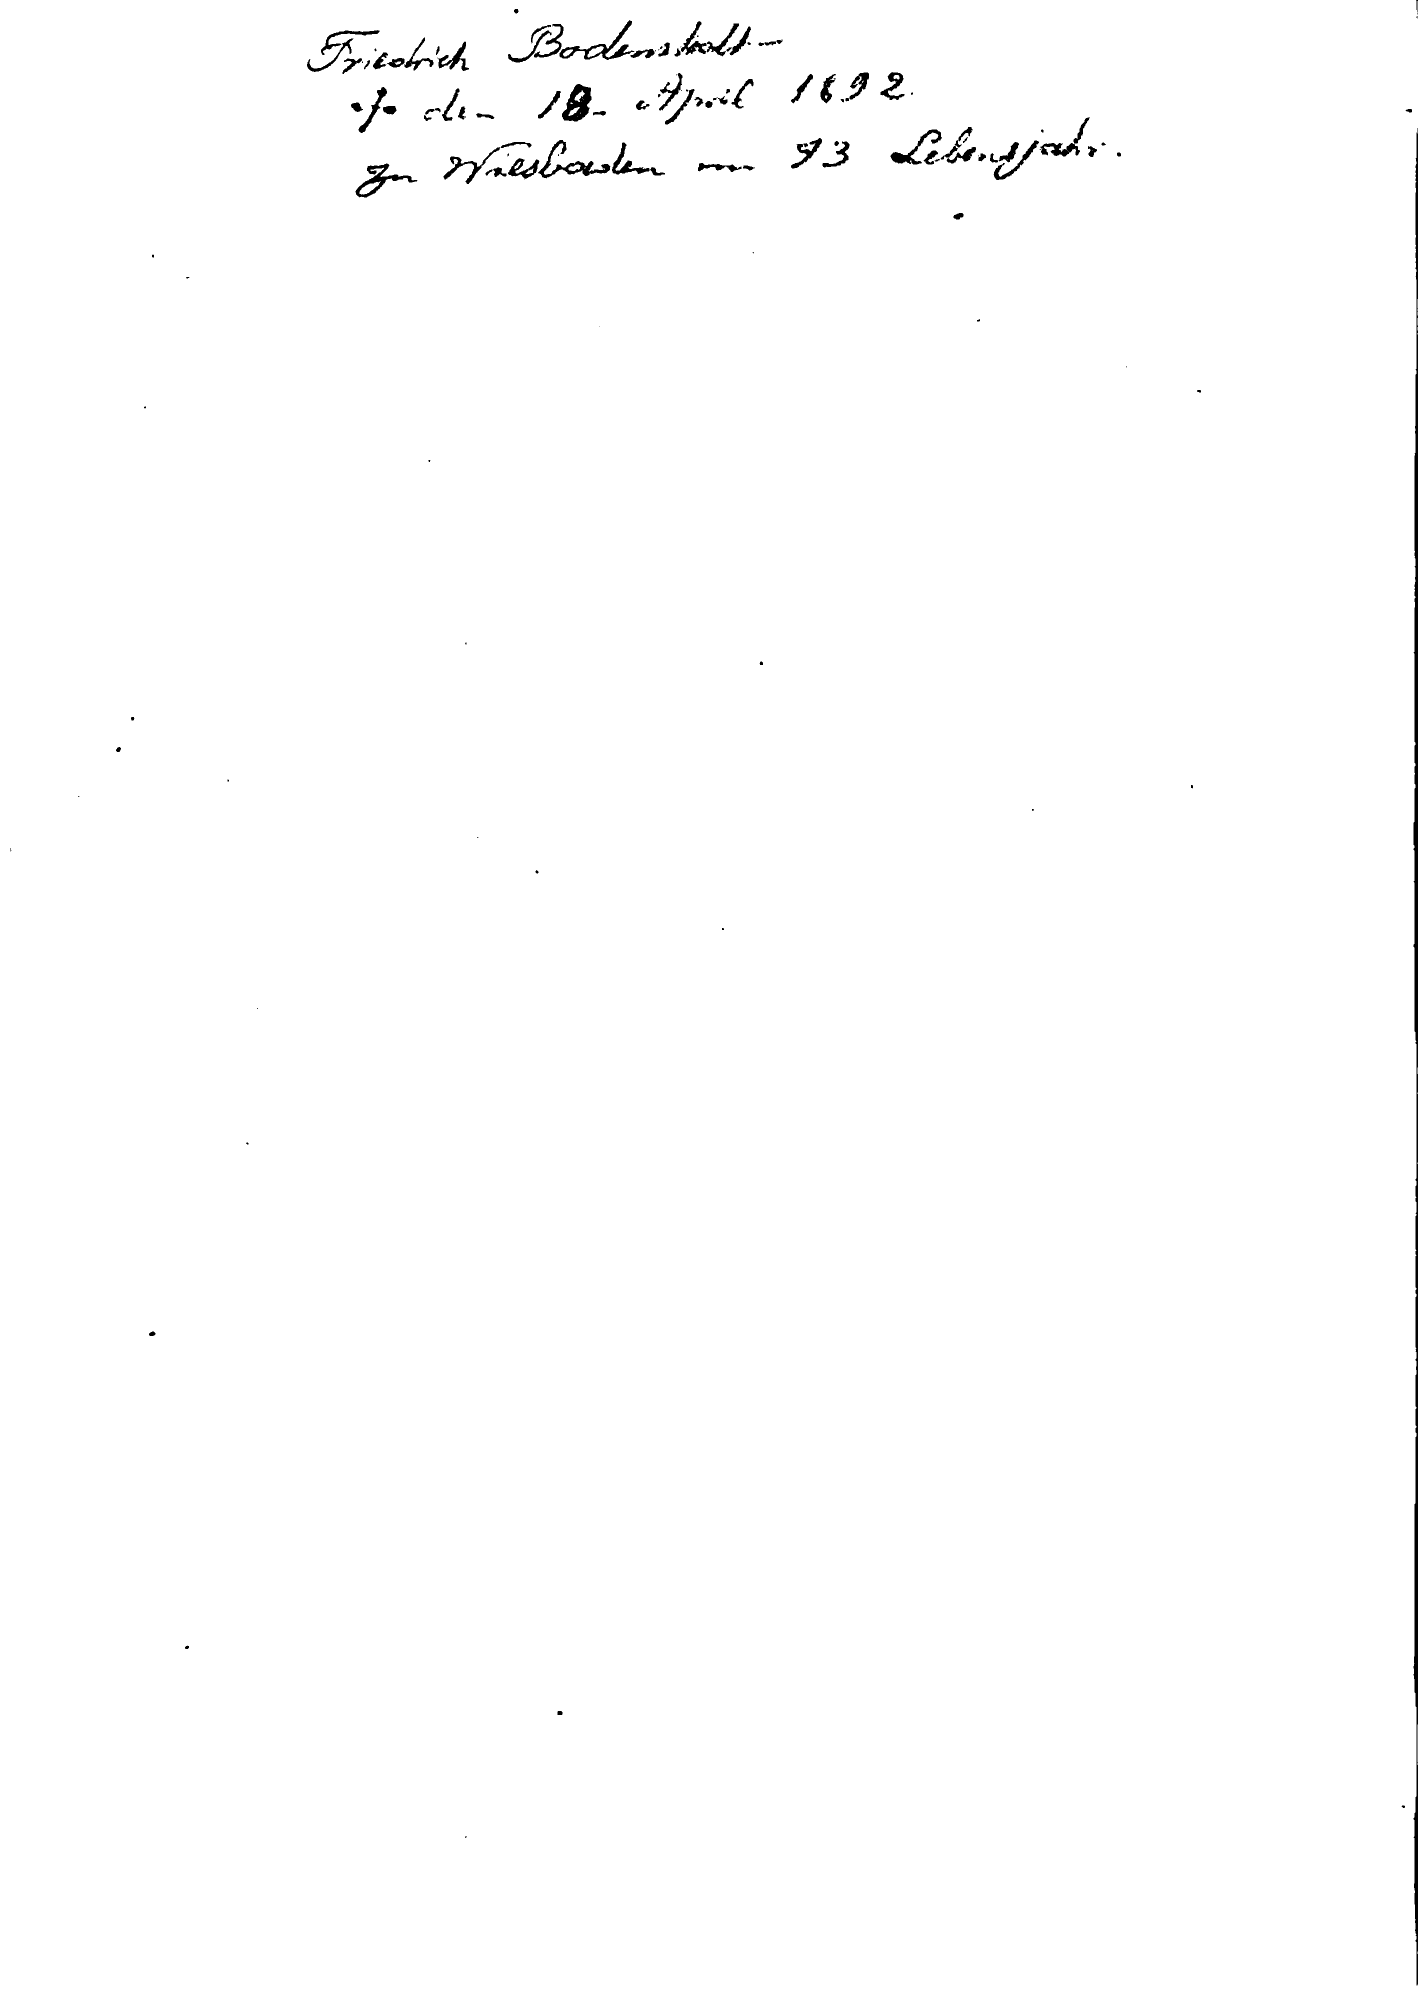 Friedrich Bodenstedt -
·/· den 18. April 1892.
zu Wiesbaden im 73 Lebensjahr.